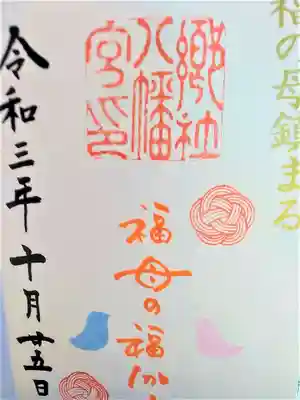 福の母鎮まる
郷社
八幡
宮印
福母の福
令和三年十月廿五日